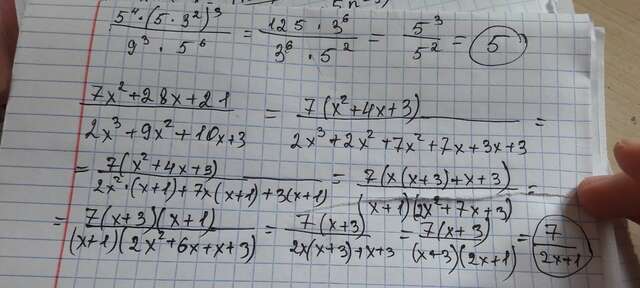 5⁴·(5·3²)³ / 9³·5⁶ = 125·3⁶ / 3⁶·5² = 5³ / 5² = 5
7x²+28x+21 / 2x³+9x²+10x+3 = 7(x²+4x+3) / 2x³+2x²+7x²+7x+3x+3 =
= 7(x²+4x+3) / 2x²·(x+1)+7x(x+1)+3(x+1) = 7(x(x+3)+x+3) / (x+1)(2x²+7x+3) =
= 7(x+3)(x+1) / (x+1)(2x²+6x+x+3) = 7(x+3) / 2x(x+3)+x+3 = 7(x+3) / (x+3)(2x+1) = 7 / 2x+1